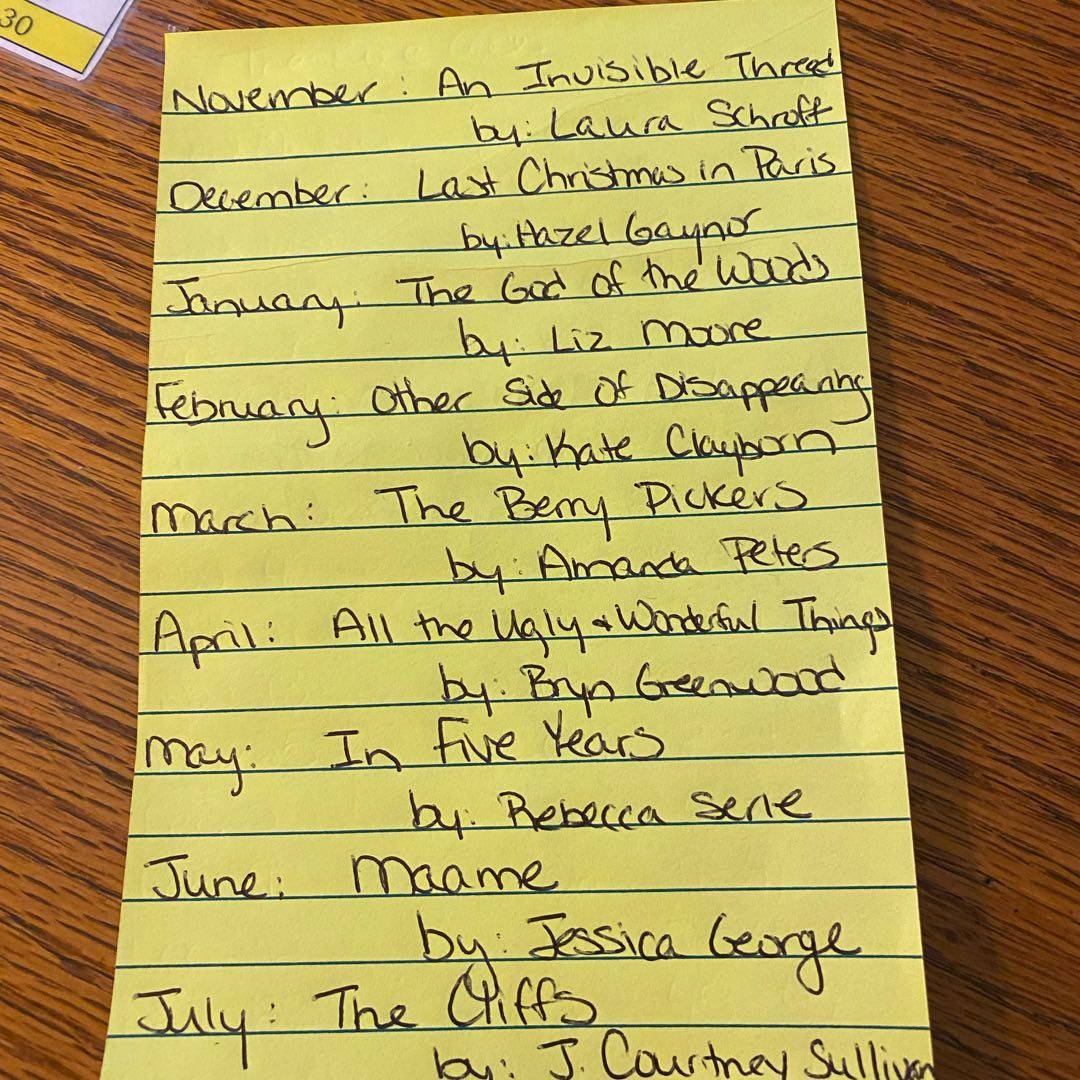 30
November: An Invisible Thread
by: Laura Schroff
December: Last Christmas in Paris
by: Hazel Gaynor
January: The God of the Woods
by: Liz Moore
February: Other Side Of Disappearing
by: Kate Clayborn
March: The Berry Pickers
by: Amanda Peters
April: All the Ugly & Wonderful Things
by: Bryn Greenwood
May: In Five Years
by: Rebecca Serle
June: Maame
by: Jessica George
July: The Cliffs
by: J. Courtney Sullivan